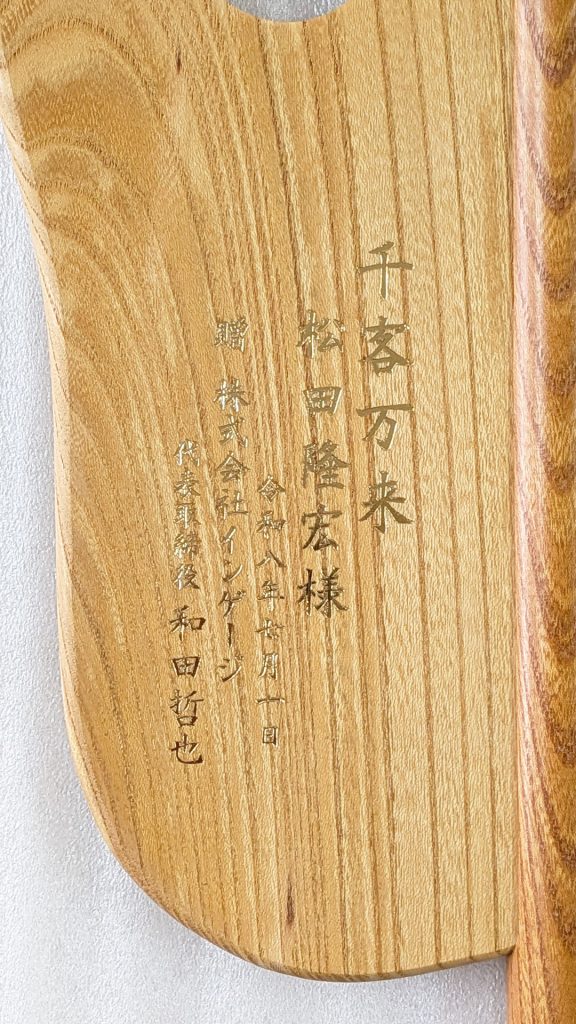 千客万来
松田隆宏様
令和八年七月一日
贈 株式会社インゲージ
代表取締役 和田哲也